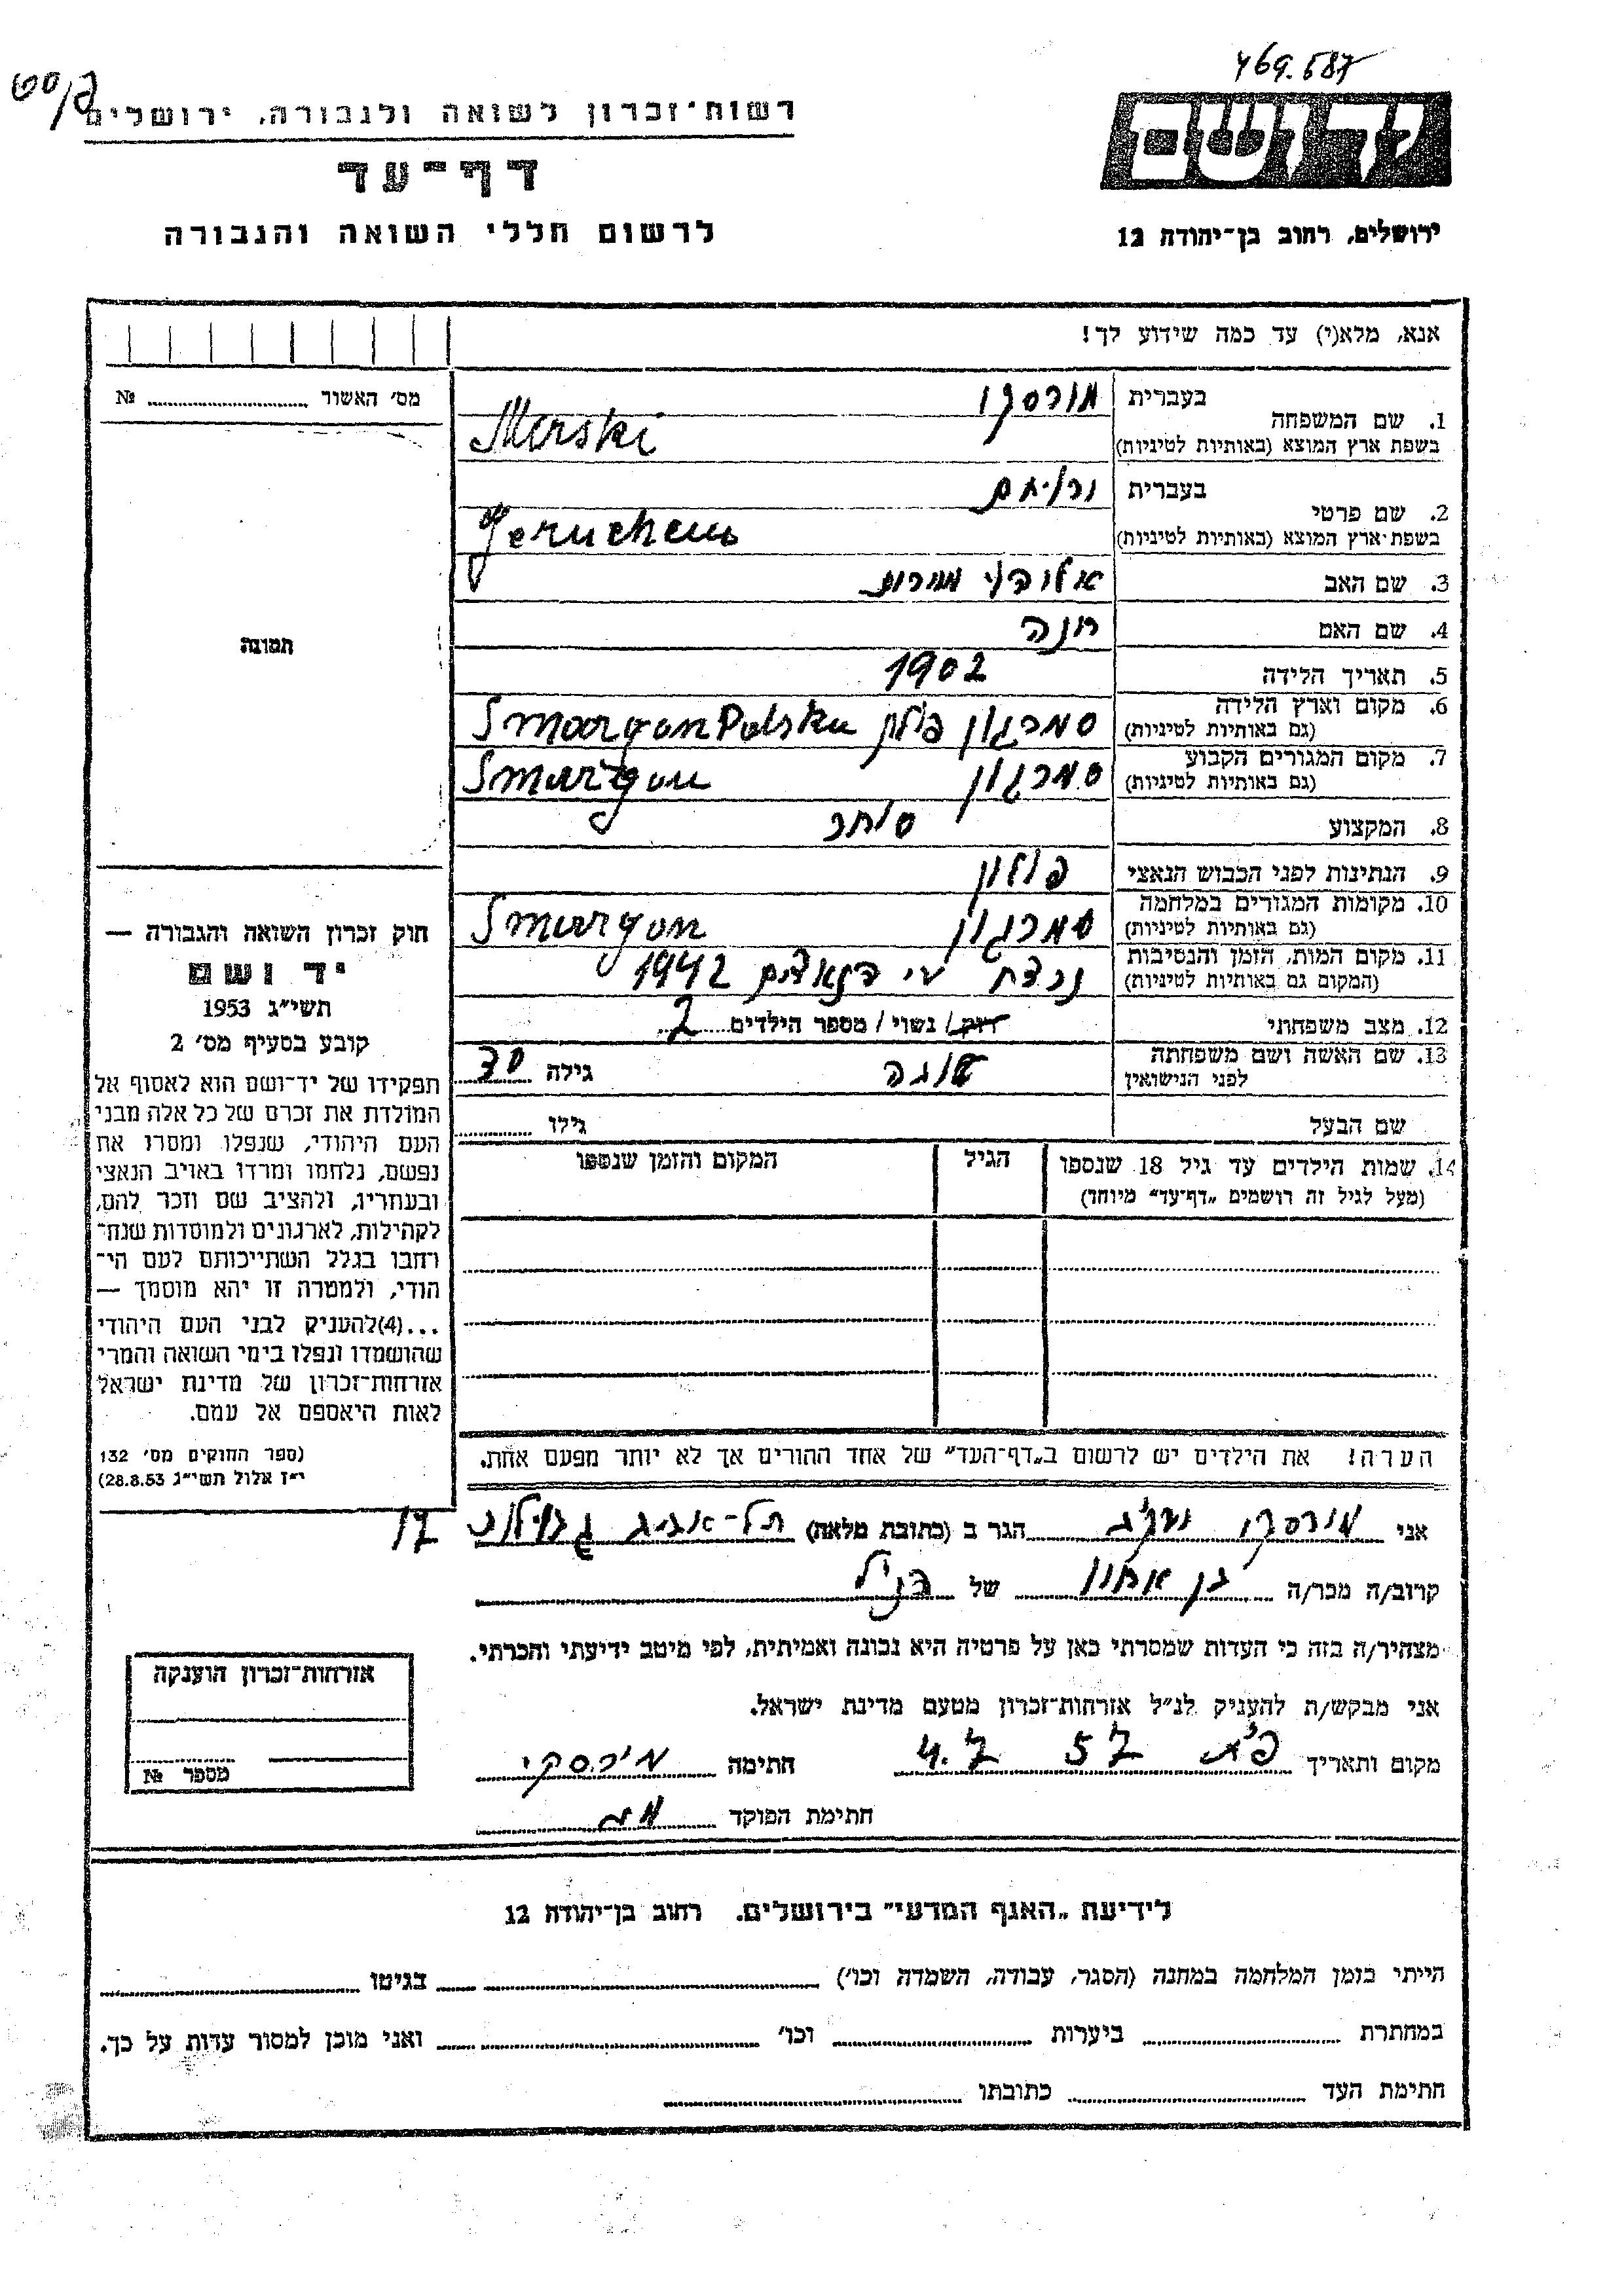 469.687
רשות־זכרון לשואה ולגבורה, ירושלים
דף־עד
לרשום חללי השואה והגבורה
יד ושם
ירושלים, רחוב בן־יהודה 12
אנא, מלא(י) עד כמה שידוע לך!
מס׳ האשור № 
1. שם המשפחה
בעברית מורסקי
בשפת ארץ המוצא (באותיות לטיניות) Mirski
2. שם פרטי
בעברית
בשפת־ארץ המוצא (באותיות לטיניות) Jeruchem
3. שם האב
4. שם האם
5. תאריך הלידה 1902
6. מקום וארץ הלידה
(גם באותיות לטיניות) סמרגון פולין Smorgon Polska
7. מקום המגורים הקבוע
(גם באותיות לטיניות) סמרגון Smorgon
8. המקצוע סוחר
9. הנתינות לפני הכבוש הנאצי פולין
10. מקומות המגורים במלחמה
(גם באותיות לטיניות) סמרגון Smorgon
11. מקום המות, הזמן והנסיבות
(המקום גם באותיות לטיניות) נרצח ע״י הנאצים 1942
12. מצב משפחתי רוק / נשוי / מספר הילדים 2
13. שם האשה ושם משפחתה
לפני הנישואין גילה
שם הבעל גילו
14. שמות הילדים עד גיל 18 שנספו
(מעל לגיל זה רושמים „דף־עד״ מיוחד)
הגיל
המקום והזמן שנספו
הערה! את הילדים יש לרשום ב„דף־העד״ של אחד ההורים אך לא יותר מפעם אחת.
תמונה
חוק זכרון השואה והגבורה —
יד ושם
תשי״ג 1953
קובע בסעיף מס׳ 2
תפקידו של יד־ושם הוא לאסוף אל
המולדת את זכרם של כל אלה מבני
העם היהודי, שנפלו ומסרו את
נפשם, נלחמו ומרדו באויב הנאצי
ובעוזריו, ולהציב שם וזכר להם,
לקהילות, לארגונים ולמוסדות שנח־
רבו בגלל השתייכותם לעם הי־
הודי, ולמטרה זו יהא מוסמך —
...(4)להעניק לבני העם היהודי
שהושמדו ונפלו בימי השואה והמרי
אזרחות־זכרון של מדינת ישראל
לאות היאספם אל עמם.
(ספר החוקים מס׳ 132
י״ז אלול תשי״ג 28.8.53)
אני מורסקי יעקב הגר ב (כתובת מלאה) תל־אביב
קרוב/ה מכר/ה בן אחיו של הנ״ל
מצהיר/ה בזה כי העדות שמסרתי כאן על פרטיה היא נכונה ואמיתית, לפי מיטב ידיעתי והכרתי.
אני מבקש/ת להעניק לנ״ל אזרחות־זכרון מטעם מדינת ישראל.
מקום ותאריך 4.7 57 חתימה מירסקי
חתימת הפוקד
אזרחות־זכרון הוענקה
מספר №
לידיעת „האגף המדעי״ בירושלים, רחוב בן־יהודה 12
הייתי בזמן המלחמה במחנה (הסגר, עבודה, השמדה וכו׳) בגיטו
במחתרת ביערות וכו׳ ואני מוכן למסור עדות על כך.
חתימת העד כתובתו